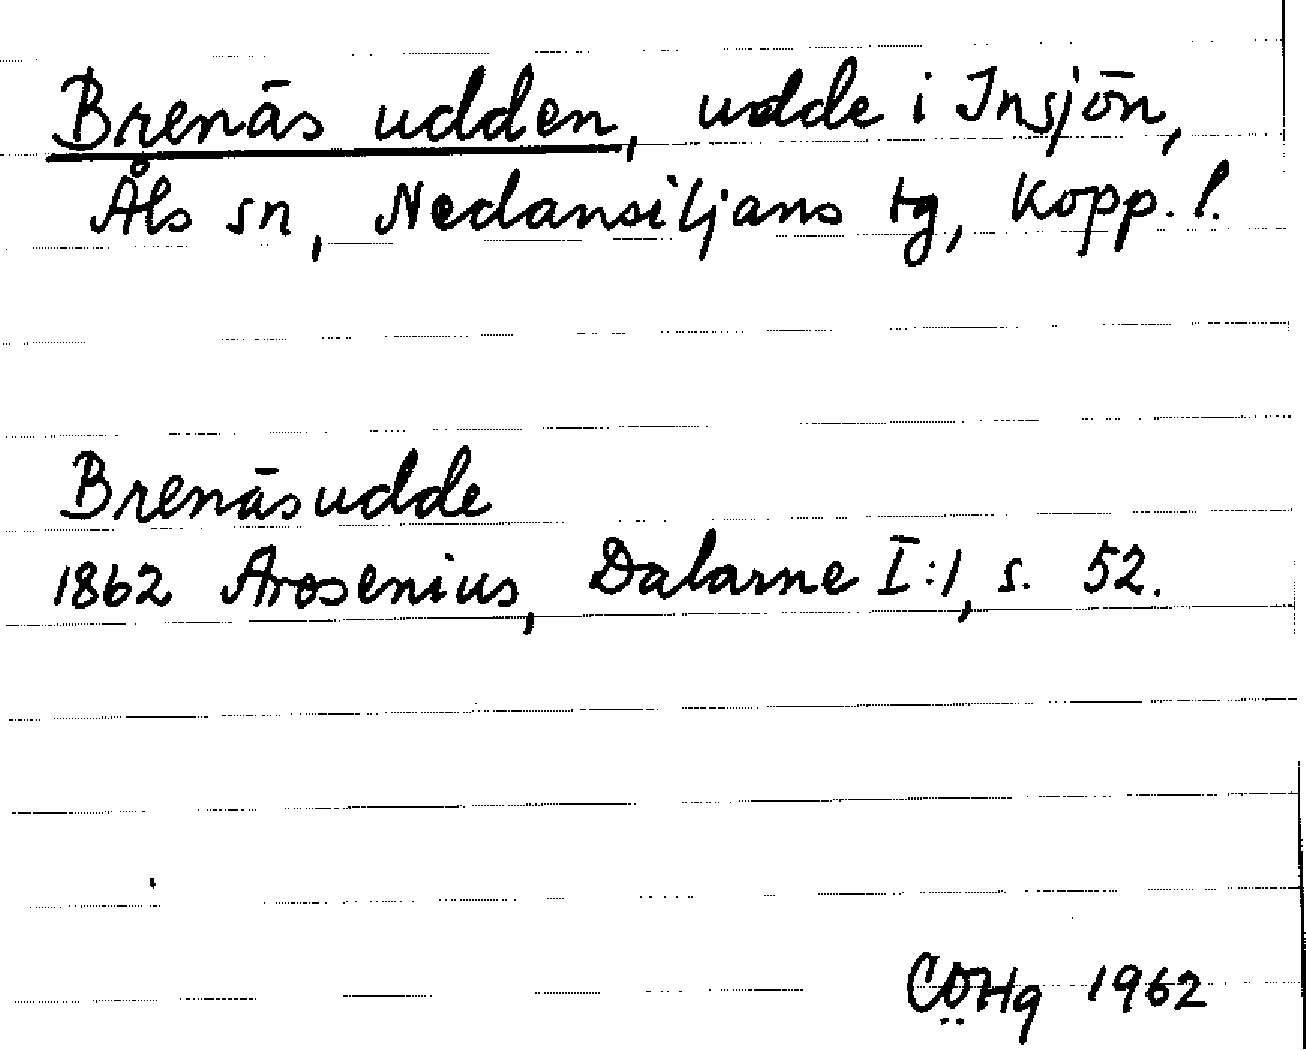 Brenäs udden, udde i Insjön,
Åls sn, Nedansiljans tg, Kopp. l.
Brenäsudde
1862 Arosenius, Dalarne I:1, s. 52.
CÖHg 1962